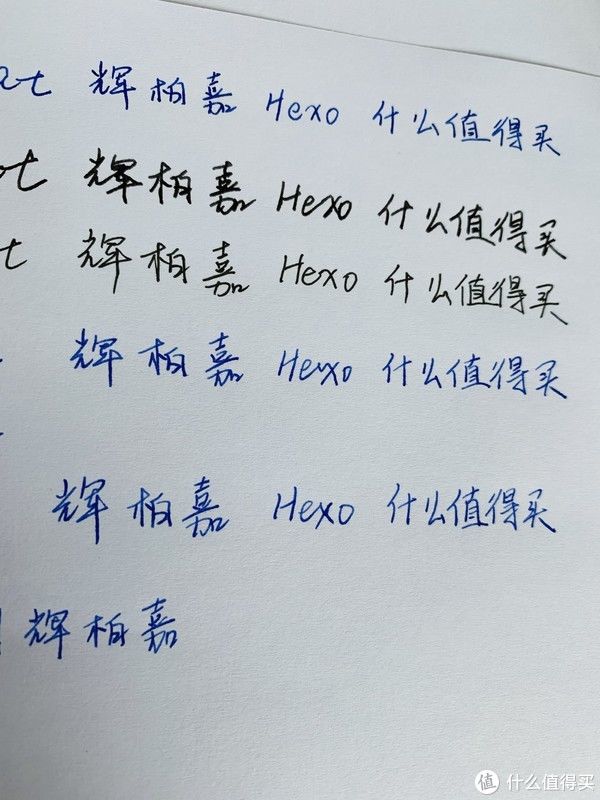 辉柏嘉 Hexo 什么值得买
辉柏嘉 Hexo 什么值得买
辉柏嘉 Hexo 什么值得买
辉柏嘉 Hexo 什么值得买
辉柏嘉 Hexo 什么值得买
辉柏嘉
值 什么值得买